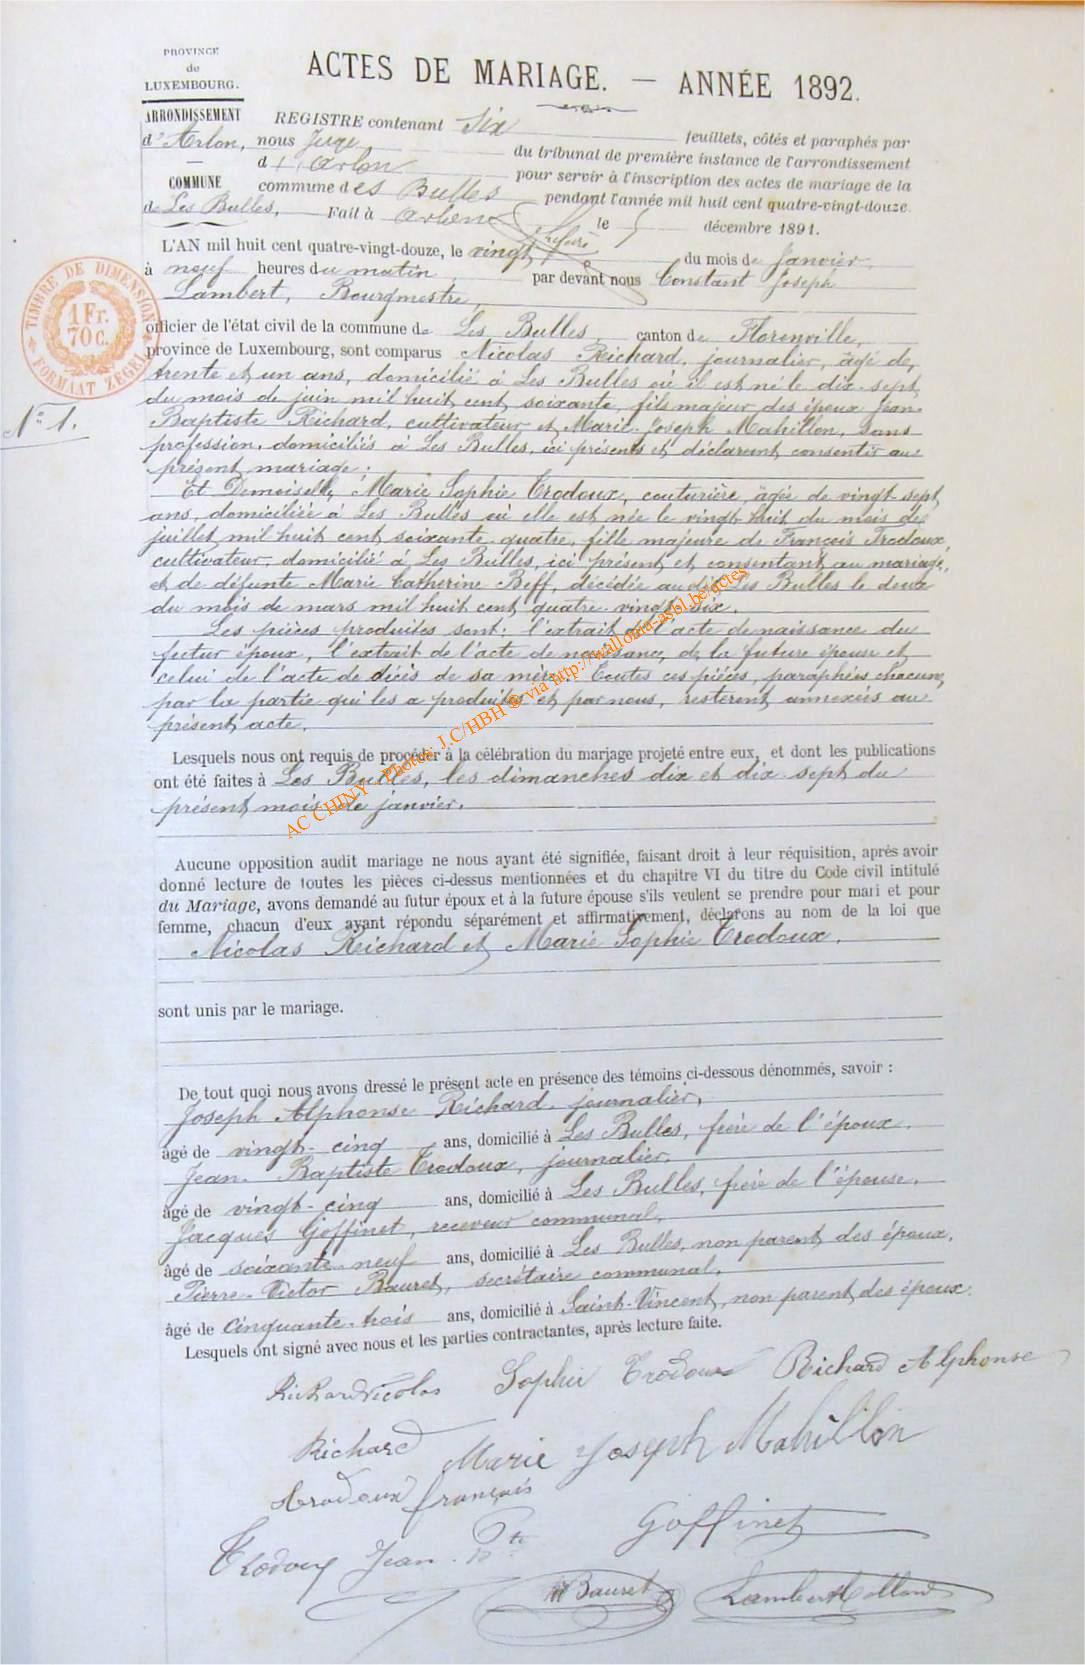 PROVINCE
de
LUXEMBOURG.
ARRONDISSEMENT
d'Arlon,
COMMUNE
de Les Bulles,
ACTES DE MARIAGE. — ANNÉE 1892.
REGISTRE contenant Six feuillets, côtés et paraphés par
nous Juge du tribunal de première instance de l'arrondissement
d'Arlon pour servir à l'inscription des actes de mariage de la
commune des Bulles pendant l'année mil huit cent quatre-vingt-douze.
Fait à Arlon le 5 décembre 1891.
TIMBRE DE DIMENSION
1 Fr.
70 c.
FORMAAT ZEGEL
N° 1.
L'AN mil huit cent quatre-vingt-douze, le vingt du mois de Janvier,
à neuf heures du matin par devant nous Constant Joseph
Lambert, Bourgmestre,
officier de l'état civil de la commune de Les Bulles canton de Florenville,
province de Luxembourg, sont comparus Nicolas Richard, journalier, âgé de
trente et un ans, domicilié à Les Bulles où il est né le dix-sept
du mois de juin mil huit cent soixante, fils majeur des époux Jean
Baptiste Richard, cultivateur et Marie-Joseph Mahillon, sans
profession, domiciliés à Les Bulles, ici présents et déclarant consentir au
présent mariage;
Et Demoiselle Marie Sophie Trodoux, couturière, âgée de vingt sept
ans, domiciliée à Les Bulles où elle est née le vingt huit du mois de
juillet mil huit cent soixante-quatre, fille majeure de François Trodoux,
cultivateur, domicilié à Les Bulles, ici présent et consentant au mariage,
et de défunte Marie Catherine Beff, décédée au dit Les Bulles le deux
du mois de mars mil huit cent quatre-vingt-six.
Les pièces produites sont: l'extrait de l'acte de naissance du
futur époux, l'extrait de l'acte de naissance de la future épouse et
celui de l'acte de décès de sa mère. Toutes ces pièces, paraphées chacune
par la partie qui les a produites et par nous, resteront annexées au
présent acte.
Lesquels nous ont requis de procéder à la célébration du mariage projeté entre eux, et dont les publications
ont été faites à Les Bulles, les dimanches dix et dix-sept du
présent mois de janvier.
AC CHINY - Photos J.C/HBH © via http://wallonia-asbl.be/actes
Aucune opposition audit mariage ne nous ayant été signifiée, faisant droit à leur réquisition, après avoir
donné lecture de toutes les pièces ci-dessus mentionnées et du chapitre VI du titre du Code civil intitulé
du Mariage, avons demandé au futur époux et à la future épouse s'ils veulent se prendre pour mari et pour
femme, chacun d'eux ayant répondu séparément et affirmativement, déclarons au nom de la loi que
Nicolas Richard et Marie Sophie Trodoux,
sont unis par le mariage.
De tout quoi nous avons dressé le présent acte en présence des témoins ci-dessous dénommés, savoir :
Joseph Alphonse Richard, journalier,
âgé de vingt-cinq ans, domicilié à Les Bulles, frère de l'époux.
Jean-Baptiste Trodoux, journalier,
âgé de vingt-cinq ans, domicilié à Les Bulles, frère de l'épouse.
Jacques Goffinet, receveur communal,
âgé de soixante-neuf ans, domicilié à Les Bulles, non parent des époux.
Pierre-Victor Bauret, secrétaire communal,
âgé de cinquante-trois ans, domicilié à Saint-Vincent, non parent des époux.
Lesquels ont signé avec nous et les parties contractantes, après lecture faite.
Richard Nicolas Sophie Trodoux Richard Alphonse
Richard Marie Joseph Mahillon
trodoux françois
Goffinet
Trodoux Jean-Bte
Bauret